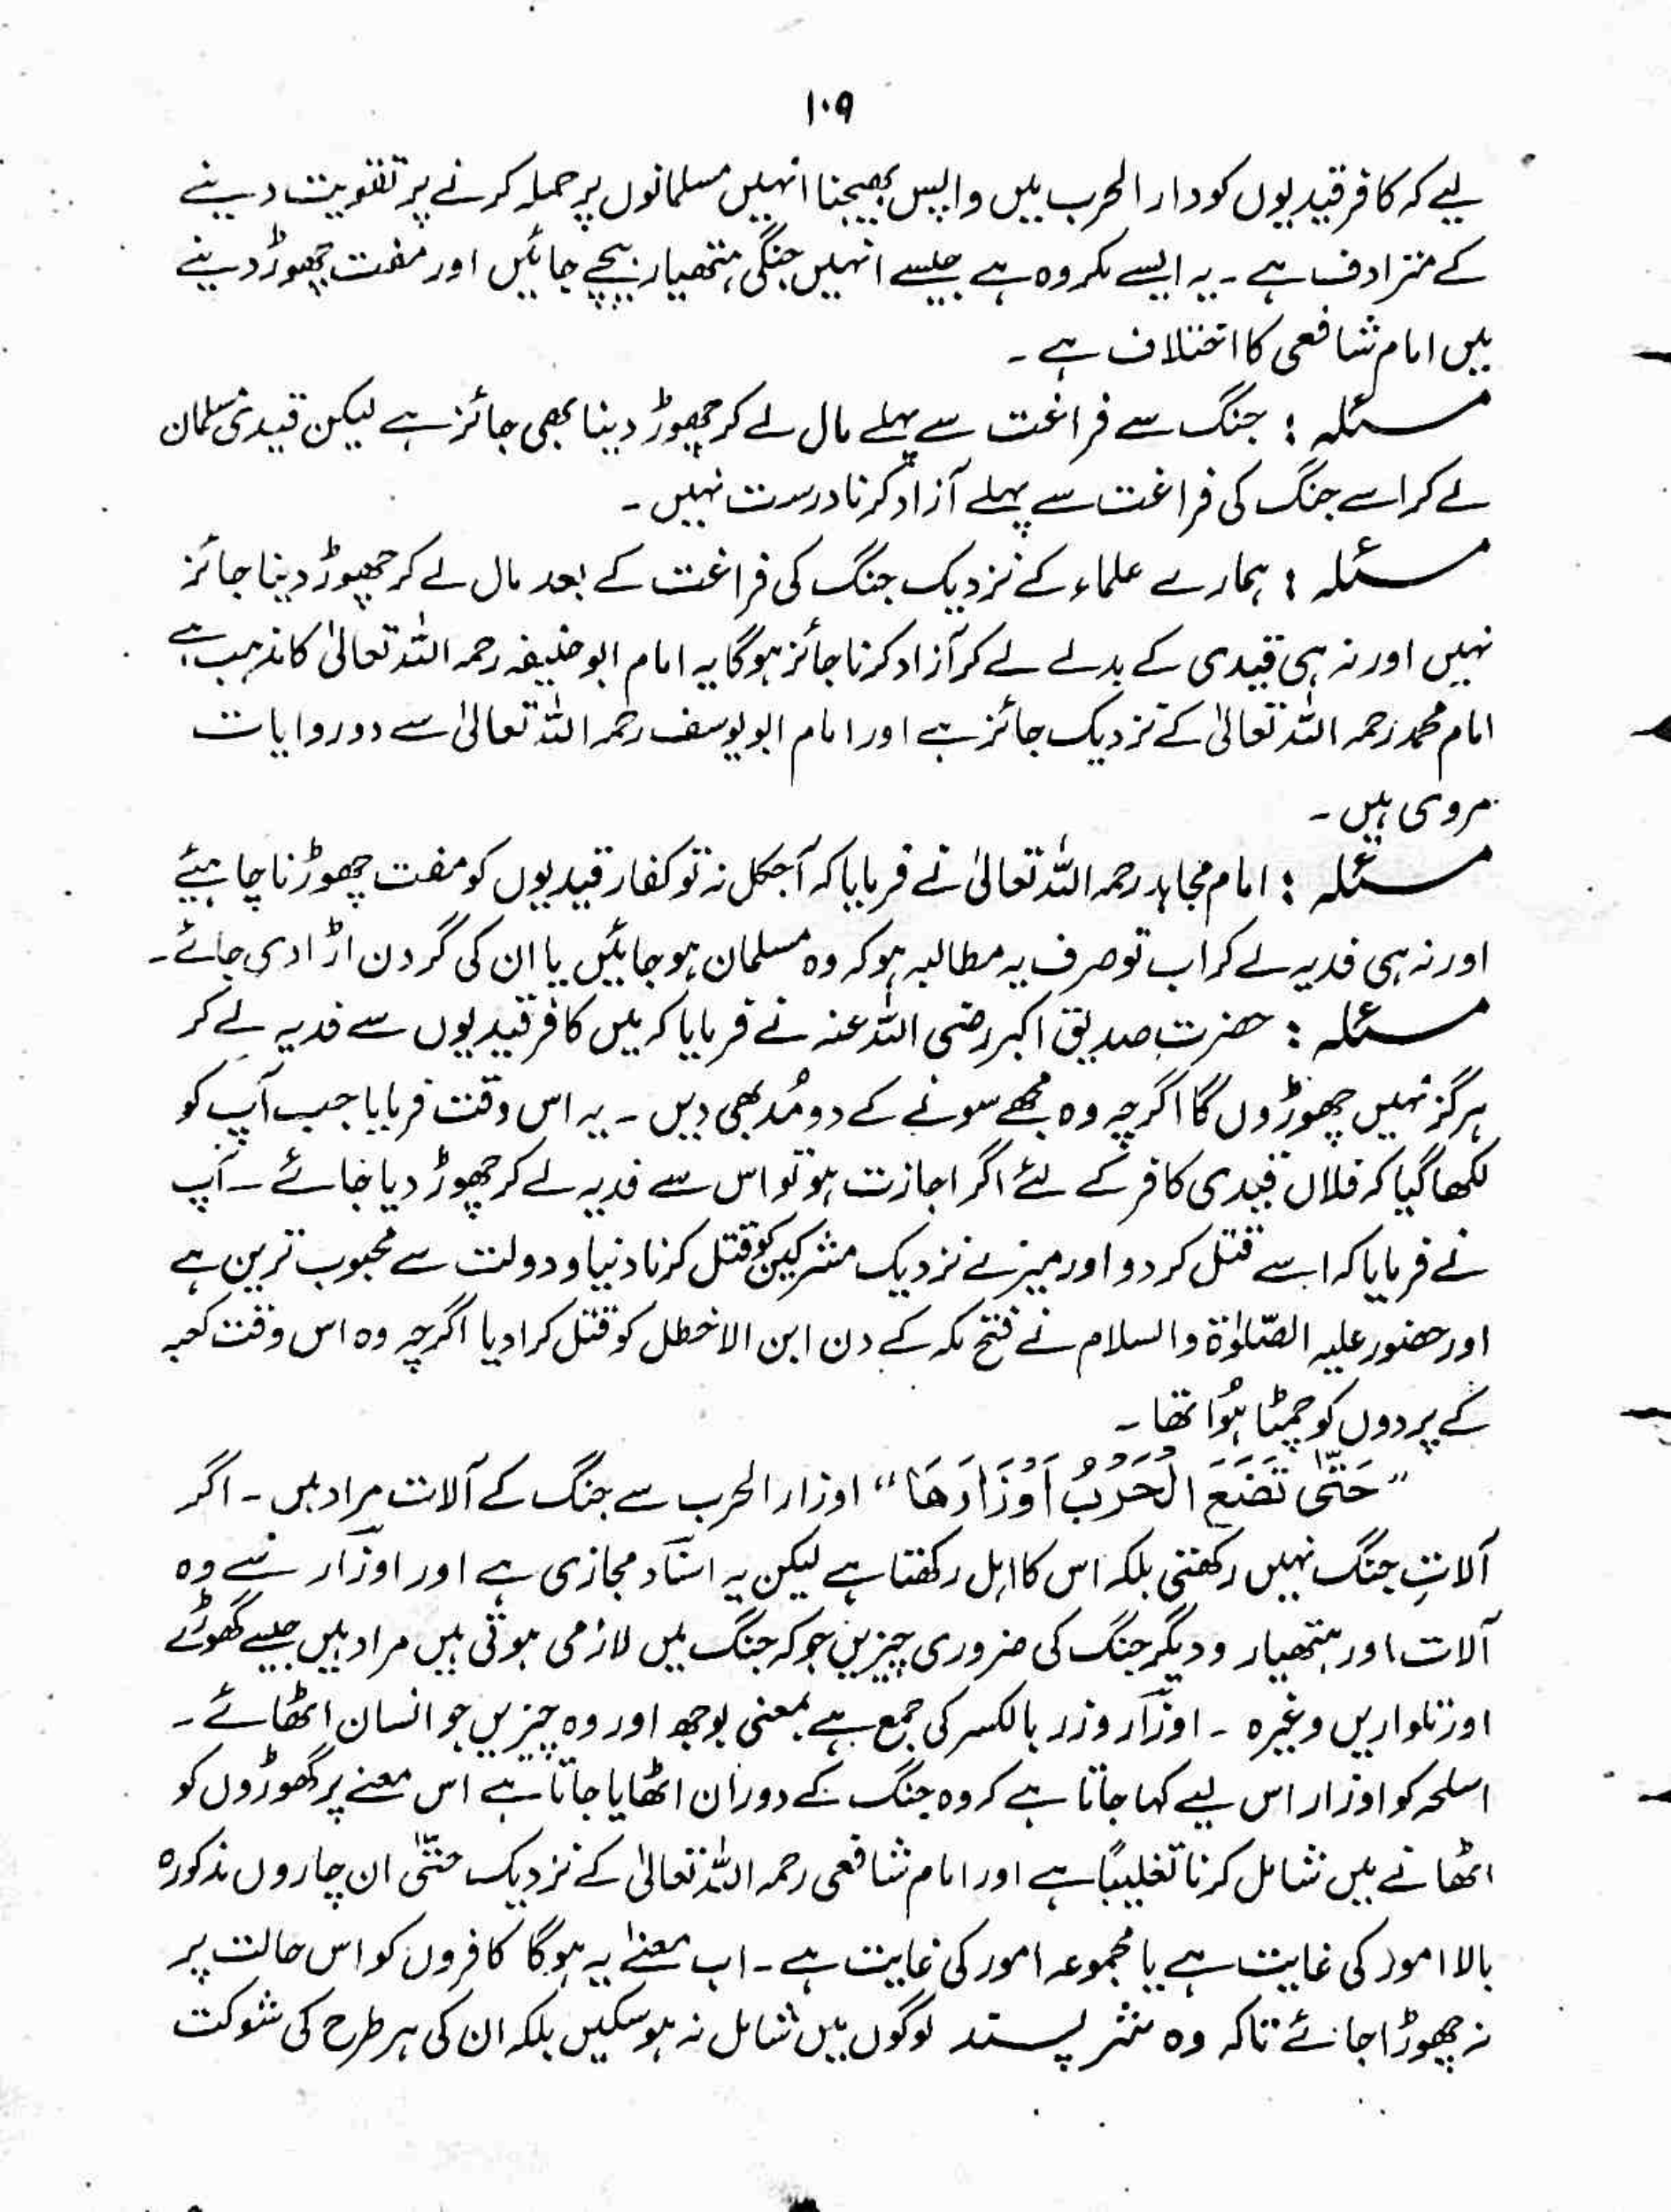 ۱۰۹
لیے کہ کافر قیدیوں کو دار الحرب میں واپس بھیجنا انہیں مسلمانوں پر حملہ کرنے پر تقویت دینے
کے مترادف ہے ۔ یہ ایسے مکروہ ہے جیسے انہیں جنگی ہتھیار بیچے جائیں اور مفت چھوڑ دینے
میں امام شافعی کا اختلاف ہے ۔
مسئلہ : جنگ سے فراغت سے پہلے مال لے کر چھوڑ دینا بھی جائز ہے لیکن قیدی مسلمان
لے کر اسے جنگ کی فراغت سے پہلے آزاد کرنا درست نہیں ۔
مسئلہ : ہمارے علماء کے نزدیک جنگ کی فراغت کے بعد مال لے کر چھوڑ دینا جائز
نہیں اور نہ ہی قیدی کے بدلے لے کر آزاد کرنا جائز ہوگا یہ امام ابوحنیفہ رحمہ اللہ تعالیٰ کا مذہب ہے
امام محمد رحمہ اللہ تعالیٰ کے نزدیک جائز ہے اور امام ابو یوسف رحمہ اللہ تعالیٰ سے دو روایات
مروی ہیں ۔
مسئلہ : امام مجاہد رحمہ اللہ تعالیٰ نے فرمایا کہ آجکل نہ تو کفار قیدیوں کو مفت چھوڑنا چاہیئے
اور نہ ہی فدیہ لے کر اب تو صرف یہ مطالبہ ہو کہ وہ مسلمان ہو جائیں یا ان کی گردن اڑا دی جائے ۔
مسئلہ : حضرتِ صدیق اکبر رضی اللہ عنہ نے فرمایا کہ میں کافر قیدیوں سے فدیہ لے کر
ہرگز نہیں چھوڑوں گا اگرچہ وہ مجھے سونے کے دو مُد بھی دیں ۔ یہ اس وقت فرمایا جب آپ کو
لکھا گیا کہ فلاں قیدی کافر کے لئے اگر اجازت ہو تو اس سے فدیہ لے کر چھوڑ دیا جائے ۔ آپ
نے فرمایا کہ اسے قتل کر دو اور میرے نزدیک مشرکین کو قتل کرنا دنیا و دولت سے محبوب ترین ہے
اور حضور علیہ الصّلوٰۃ والسلام نے فتح مکہ کے دن ابن الاخطل کو قتل کرا دیا اگرچہ وہ اس وقت کعبہ
کے پردوں کو چمٹا ہُوا تھا ۔
”حَتّٰی تَضَعَ الْحَرْبُ اَوْزَارَهَا“ اوزار الحرب سے جنگ کے آلات مراد ہیں ۔ اگر
آلاتِ جنگ نہیں رکھتی بلکہ اس کا اہل رکھتا ہے لیکن یہ اسناد مجازی ہے اور اوزار سے وہ
آلات اور ہتھیار و دیگر جنگ کی ضروری چیزیں جو کہ جنگ میں لازمی ہوتی ہیں مراد ہیں جیسے گھوڑے
اور تلواریں وغیرہ ۔ اوزار وزر بالکسر کی جمع ہے بمعنی بوجھ اور وہ چیزیں جو انسان اٹھائے ۔
اسلحہ کو اوزار اس لیے کہا جاتا ہے کہ وہ جنگ کے دوران اٹھایا جاتا ہے اس معنے پر گھوڑوں کو
اٹھانے میں شامل کرنا تغلیباً ہے اور امام شافعی رحمہ اللہ تعالیٰ کے نزدیک حتّٰی ان چاروں مذکورہ
بالا امور کی غایت ہے یا مجموعہ امور کی غایت ہے ۔ اب معنے یہ ہوگا کافروں کو اس حالت پر
نہ چھوڑا جائے تاکہ وہ شر پسند لوگوں میں شامل نہ ہو سکیں بلکہ ان کی ہر طرح کی شوکت